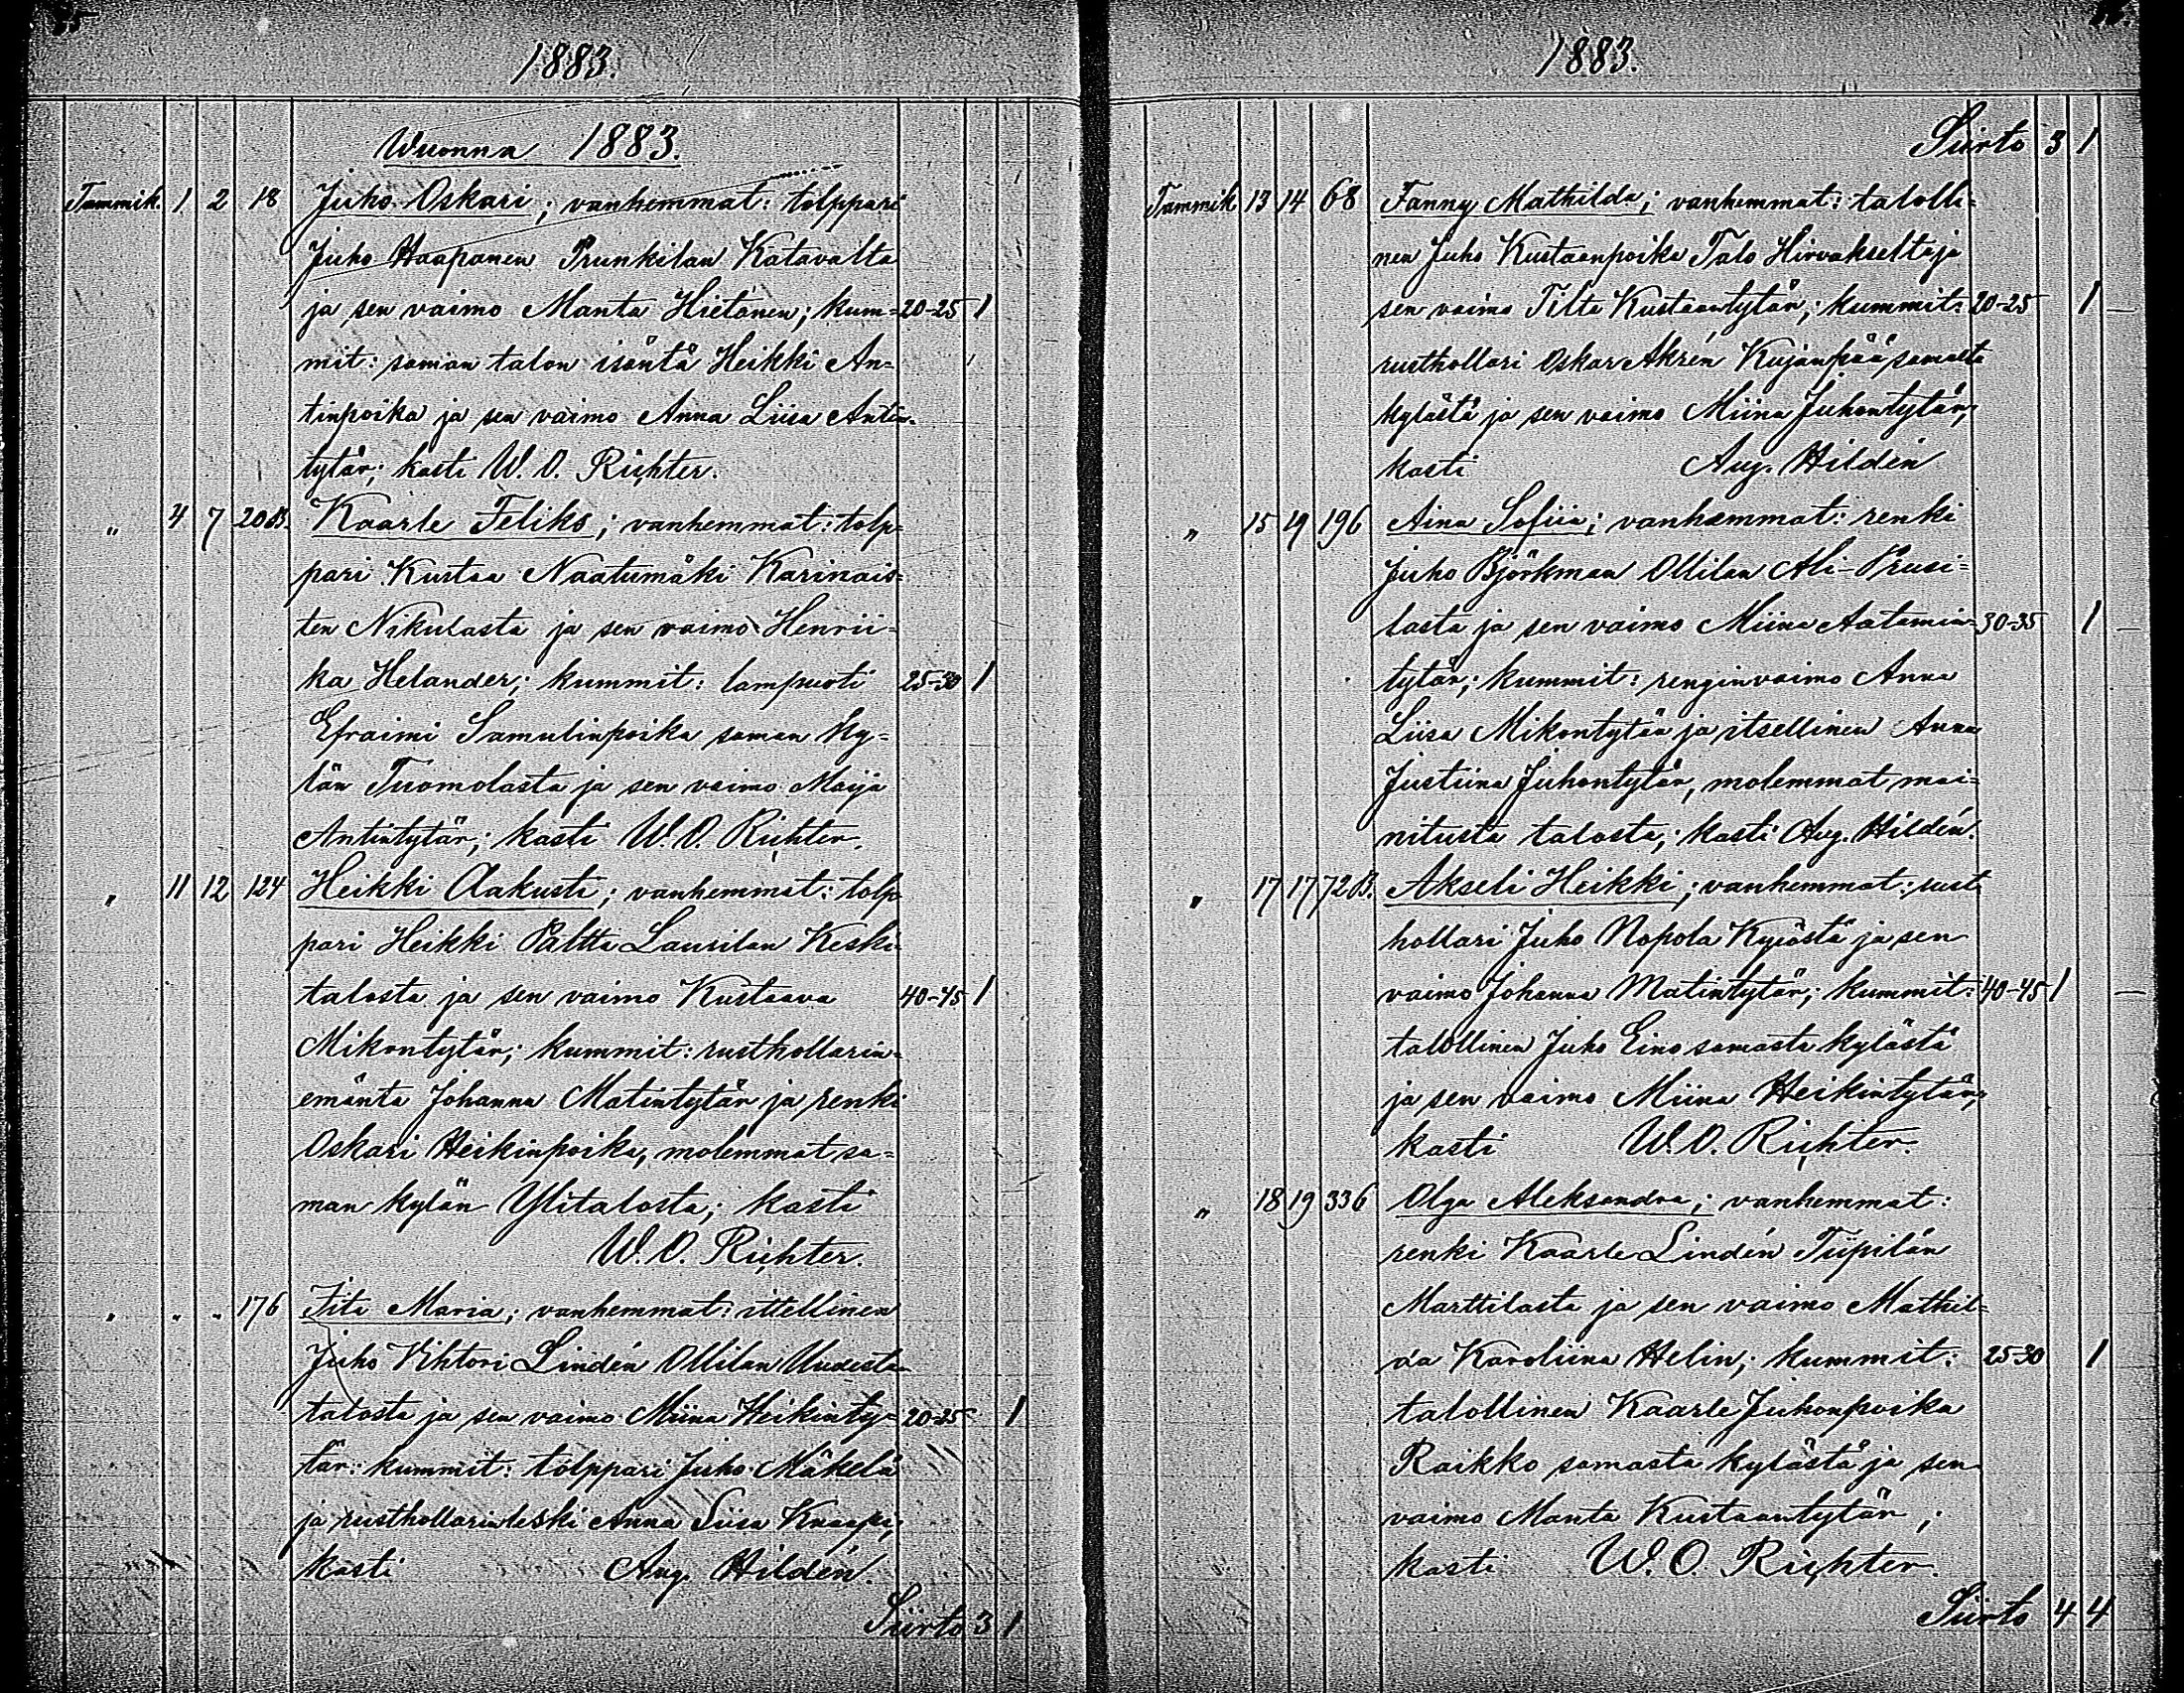 1883.
Wuonna 1883.
Tammik. 1 2 18 Juho Oskari; vanhemmat: tolppari
Juho Haapanen Prunkilan Katavalta
ja sen vaimo Manta Hietanen; kum= 20-25 1
mit: saman talon isäntä Heikki An=
tinpoika ja sen vaimo Anna Liisa Antin-
tytär; kasti W. O. Richter.
" 4 7 20B. Kaarle Feliks; vanhemmat: tolp=
pari Kustaa Naatumäki Karinais=
ten Nikulasta ja sen vaimo Henrii=
ka Helander; kummit: lampuoti 25-30 1
Efraimi Samulinpoika saman ky=
län Tuomolasta ja sen vaimo Maija
Antintytär; kasti W. O. Richter.
" 11 12 124 Heikki Aakusti; vanhemmat: tolp
pari Heikki Paltta Laurilan Keski
talosta ja sen vaimo Kustaava 40-45 1
Mikontytär; kummit: rusthollarin=
emäntä Johanna Matintytär ja renki
Oskari Heikinpoika, molemmat sa=
man kylän Ylitalosta; kasti
W. O. Richter.
" " " 176 Fita Maria; vanhemmat: ittellinen
Juho Vihtori Lindén Ollilan Uudesta
talosta ja sen vaimo Miina Heikinty= 20-25 1
tär: kummit: tolppari Juho Mäkelä
ja rusthollarinleski Anna Liisa Knaapi;
kasti Aug. Hildén.
Siirto 3 1
1883.
Siirto 3 1
Tammik 13 14 68 Fanny Mathilda; vanhemmat: talolli=
nen Juho Kustaanpoika Talo Hirvakselta ja
sen vaimo Tilta Kustaantytär; kummit: 20-25 1
rusthollari Oskar Akrén Kujanpää samalta
kylästä ja sen vaimo Miina Juhontytär;
kasti Aug. Hildén
" 15 19 196 Aina Sofiia; vanhemmat: renki
Juho Björkman Ollilan Ali-Prusi=
lasta ja sen vaimo Miina Aatamin= 30-35 1
tytär; kummit: renginvaimo Anna
Liisa Mikontytär ja itsellinen Anna
Justiina Juhontytär, molemmat mai=
nitusta talosta; kasti Aug. Hildén.
" 17 17 72B. Akseli Heikki; vanhemmat: rust
hollari Juho Nopola Kyröstä ja sen
vaimo Johanna Matintytär; kummit: 40-45 1
talollinen Juho Eino samasta kylästä
ja sen vaimo Miina Heikintytär;
kasti W. O. Richter.
" 18 19 336 Olga Aleksandra; vanhemmat:
renki Kaarle Lindén Tiipilän
Marttilasta ja sen vaimo Mathil=
da Karoliina Helin; kummit: 25-30 1
talollinen Kaarle Juhonpoika
Raikko samasta kylästä ja sen
vaimo Manta Kustaantytär;
kasti W. O. Richter.
Siirto 4 4